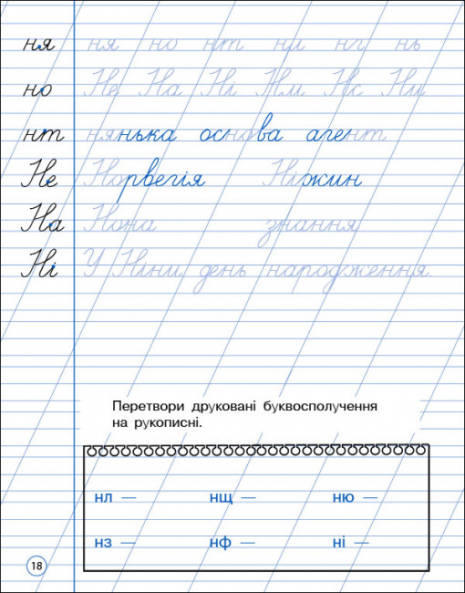 ня ня но нт нл нг нь
но Не На Ні Нм Нс Ни
нт нянька основа агент
Не Норвегія Ніжин
На Нона знання
Ні У Ніни день народження
Перетвори друковані буквосполучення
на рукописні.
нл — нщ — ню —
нз — нф — ні —
18